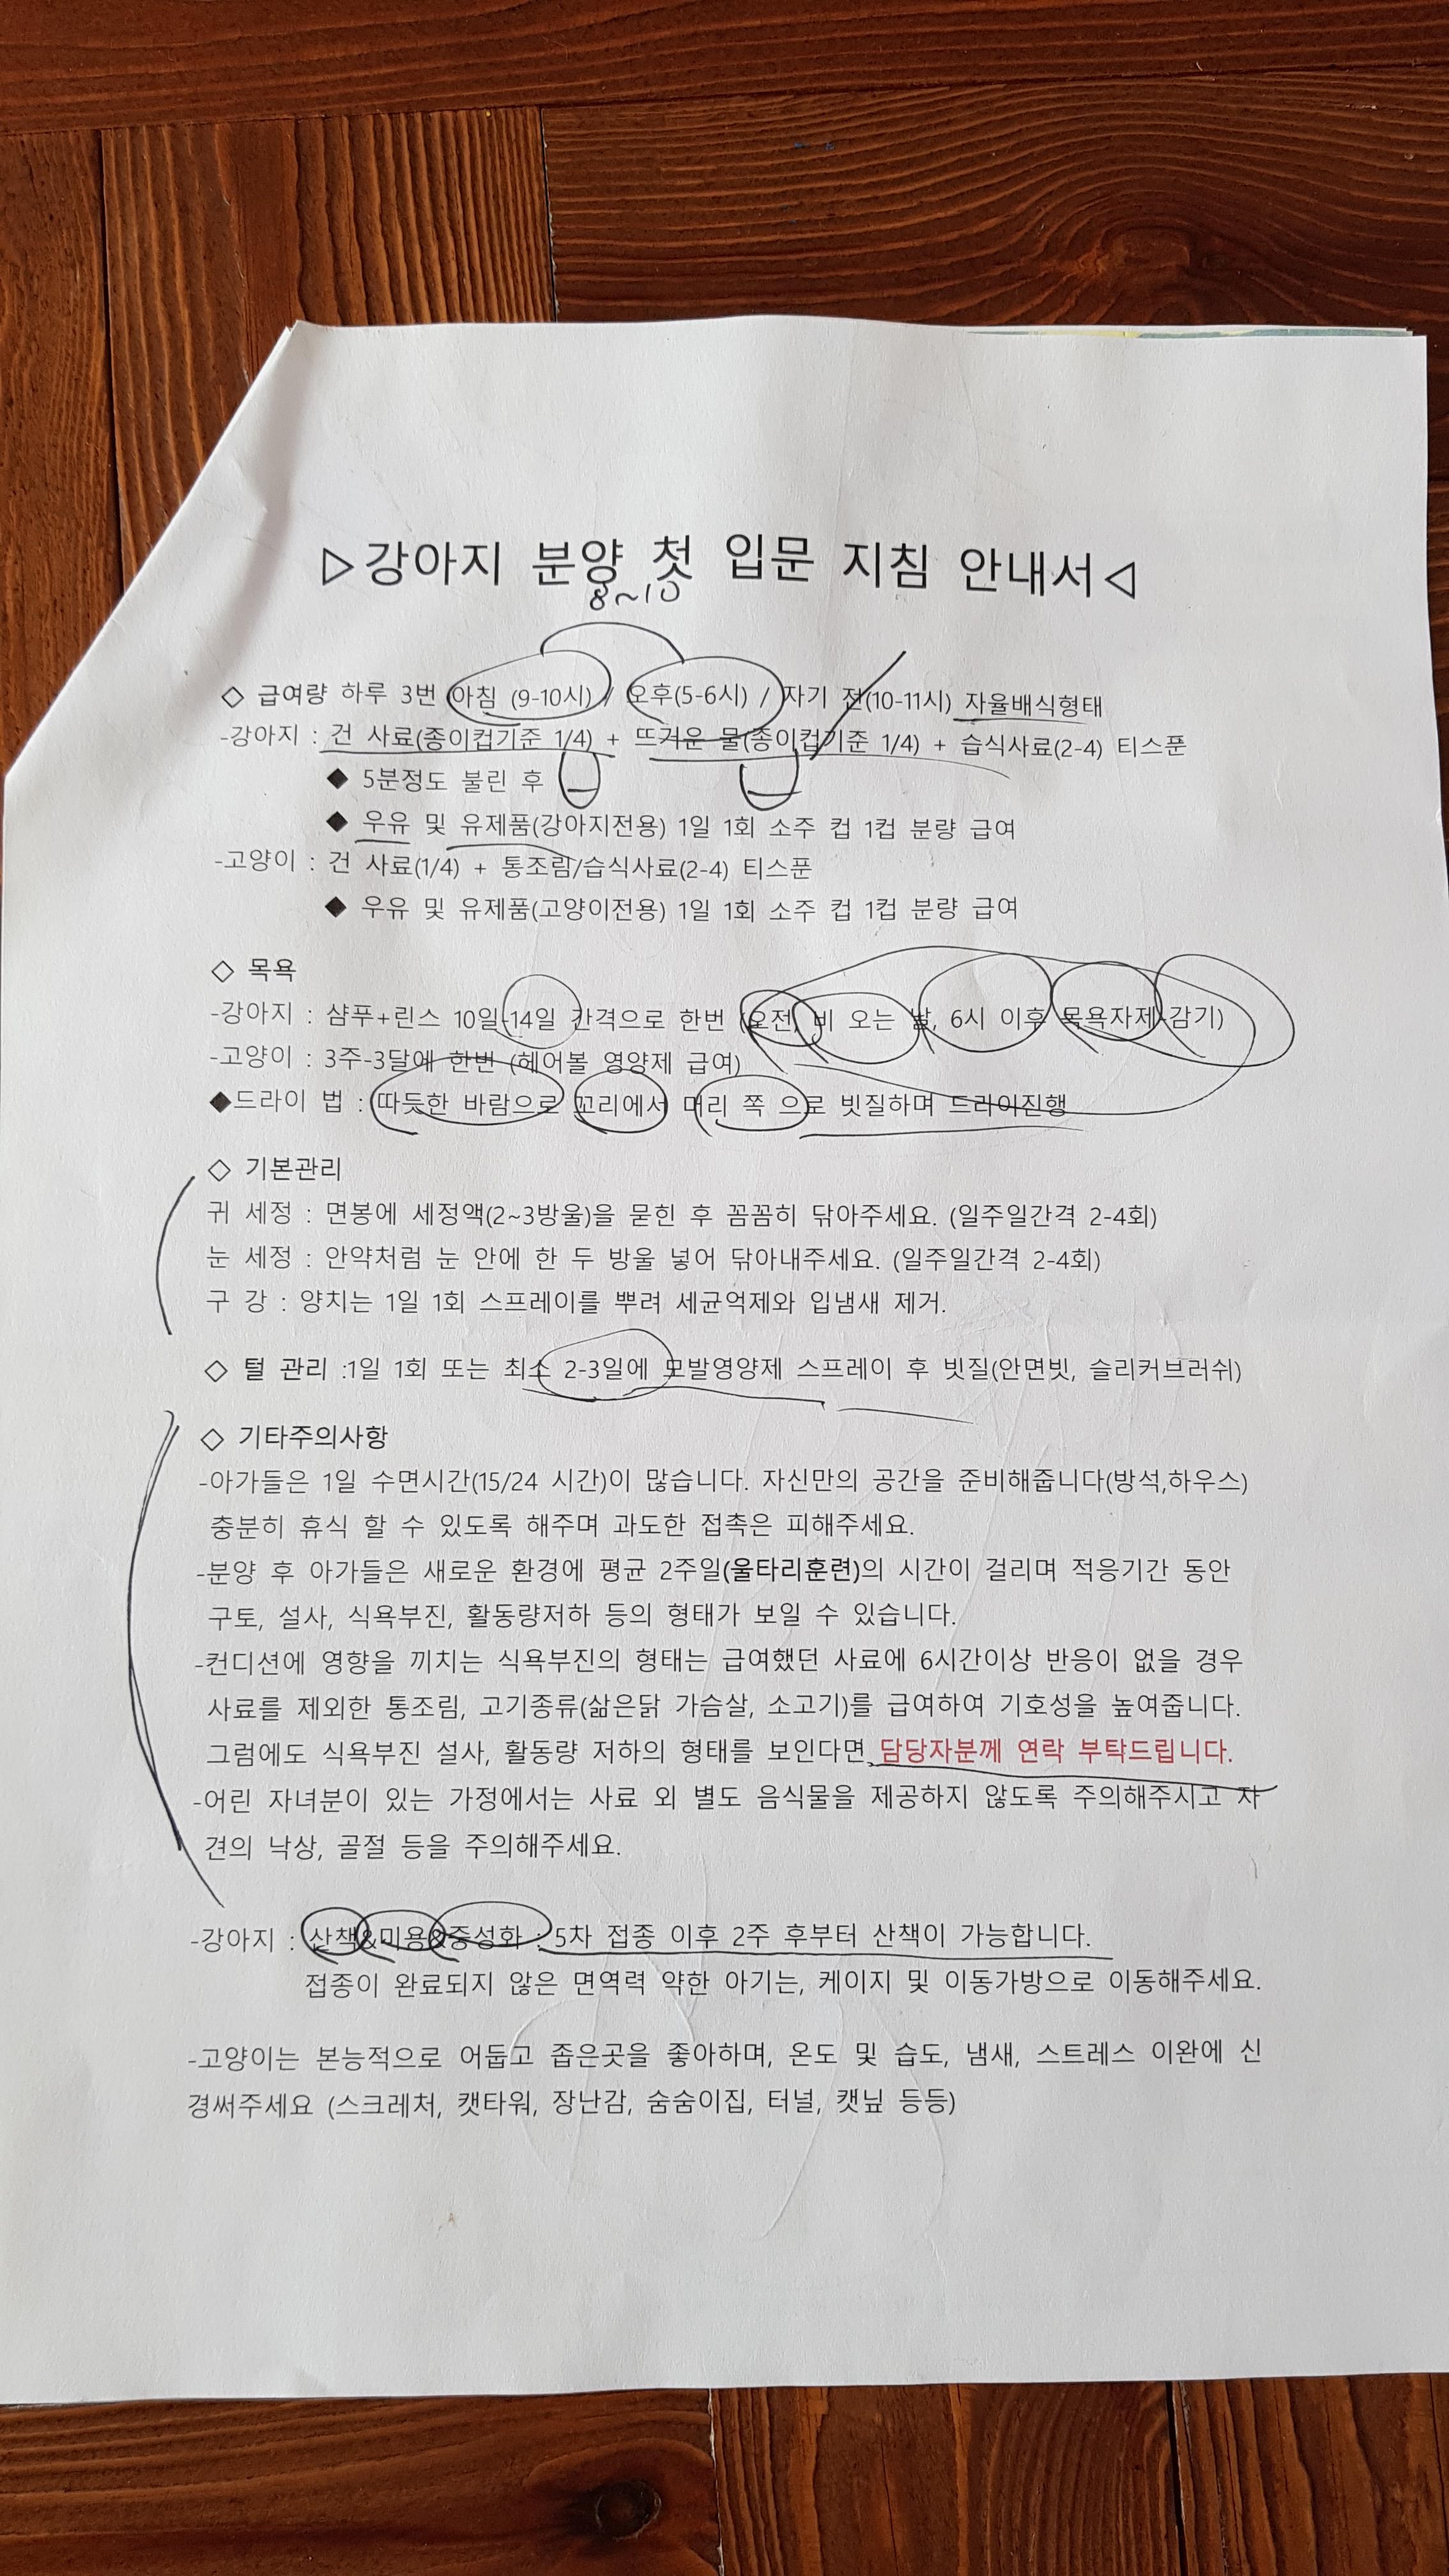 ▷강아지 분양 첫 입문 지침 안내서◁
8~10
◇ 급여량 하루 3번 아침 (9-10시) / 오후(5-6시) / 자기 전(10-11시) 자율배식형태
-강아지 : 건 사료(종이컵기준 1/4) + 뜨거운 물(종이컵기준 1/4) + 습식사료(2-4) 티스푼
◆ 5분정도 불린 후
◆ 우유 및 유제품(강아지전용) 1일 1회 소주 컵 1컵 분량 급여
-고양이 : 건 사료(1/4) + 통조림/습식사료(2-4) 티스푼
◆ 우유 및 유제품(고양이전용) 1일 1회 소주 컵 1컵 분량 급여
◇ 목욕
-강아지 : 샴푸+린스 10일-14일 간격으로 한번 (오전, 비 오는 날, 6시 이후 목욕자제-감기)
-고양이 : 3주-3달에 한번 (헤어볼 영양제 급여)
◆드라이 법 : 따듯한 바람으로 꼬리에서 머리 쪽 으로 빗질하며 드라이진행
◇ 기본관리
귀 세정 : 면봉에 세정액(2~3방울)을 묻힌 후 꼼꼼히 닦아주세요. (일주일간격 2-4회)
눈 세정 : 안약처럼 눈 안에 한 두 방울 넣어 닦아내주세요. (일주일간격 2-4회)
구 강 : 양치는 1일 1회 스프레이를 뿌려 세균억제와 입냄새 제거.
◇ 털 관리 :1일 1회 또는 최소 2-3일에 모발영양제 스프레이 후 빗질(안면빗, 슬리커브러쉬)
◇ 기타주의사항
-아가들은 1일 수면시간(15/24 시간)이 많습니다. 자신만의 공간을 준비해줍니다(방석,하우스)
충분히 휴식 할 수 있도록 해주며 과도한 접촉은 피해주세요.
-분양 후 아가들은 새로운 환경에 평균 2주일(울타리훈련)의 시간이 걸리며 적응기간 동안
구토, 설사, 식욕부진, 활동량저하 등의 형태가 보일 수 있습니다.
-컨디션에 영향을 끼치는 식욕부진의 형태는 급여했던 사료에 6시간이상 반응이 없을 경우
사료를 제외한 통조림, 고기종류(삶은닭 가슴살, 소고기)를 급여하여 기호성을 높여줍니다.
그럼에도 식욕부진 설사, 활동량 저하의 형태를 보인다면, 담당자분께 연락 부탁드립니다.
-어린 자녀분이 있는 가정에서는 사료 외 별도 음식물을 제공하지 않도록 주의해주시고 자
견의 낙상, 골절 등을 주의해주세요.
-강아지 : 산책&미용&중성화 : 5차 접종 이후 2주 후부터 산책이 가능합니다.
접종이 완료되지 않은 면역력 약한 아기는, 케이지 및 이동가방으로 이동해주세요.
-고양이는 본능적으로 어둡고 좁은곳을 좋아하며, 온도 및 습도, 냄새, 스트레스 이완에 신
경써주세요 (스크레처, 캣타워, 장난감, 숨숨이집, 터널, 캣닢 등등)